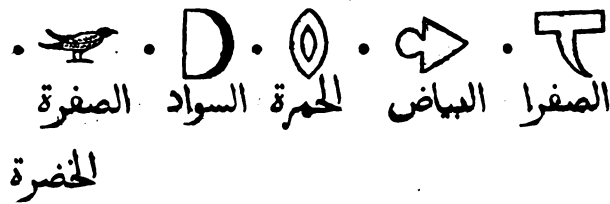 الصفرا البياض الحمرة السواد الصفرة
الخضرة